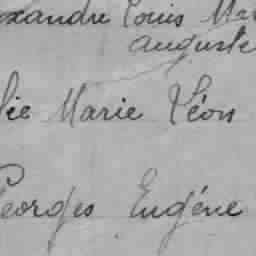 exandre Louis Mar
Auguste
lie Marie Léon
Georges Eugéne